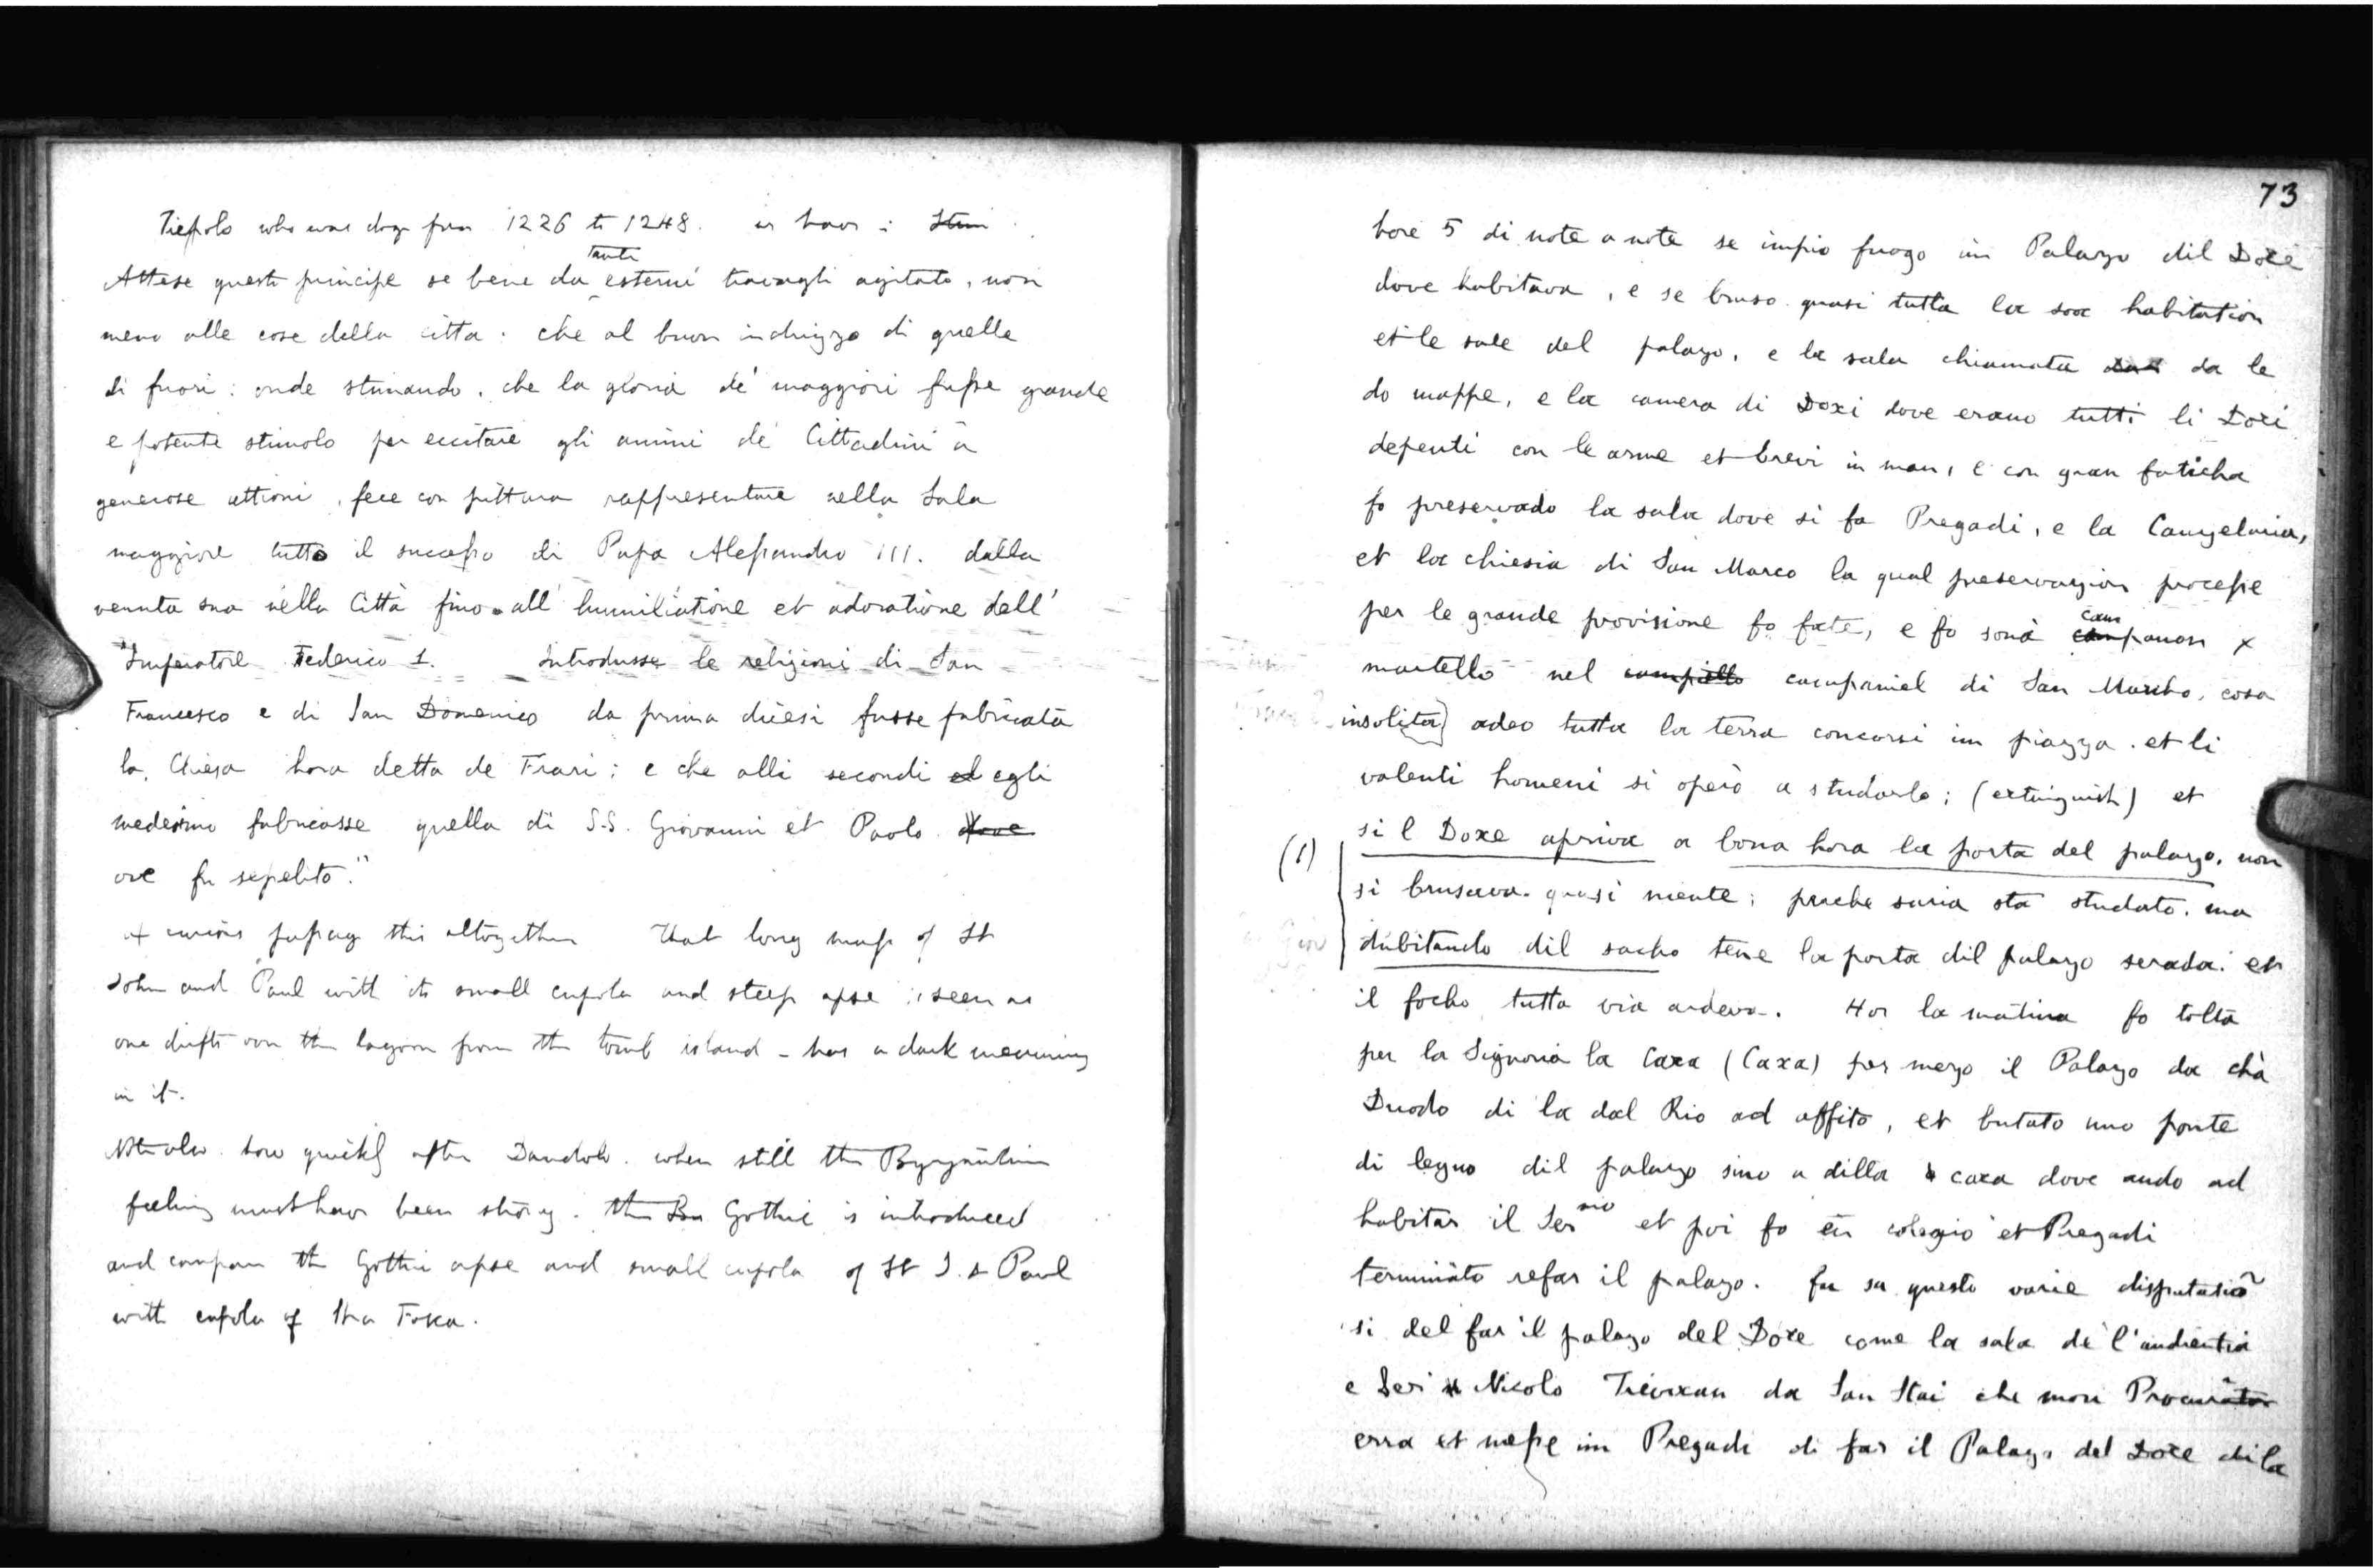 Tiepolo who was doge from 1226 to 1248.
tanti
Attese questi principe se bene da esterni travagli agitato, non
meno alle cose della citta: che al buon indrizzo di quelle
di fuori: onde stimando, che la gloria de' maggiori fusse grande
e potente stimolo per eccitare gli animi de' Cittadini à
generose attioni, fece con pittura rappresentare nella Sala
maggiore tutto il successo di Papa Alessandro III. dalla
venuta sua nella Città fino all' humiliatione et adoratione dell'
Imperatore Federico 1. Introdusse le religioni di San
Francesco e di San Domenico da prima dicesi fusse fabricata
la Chiesa hora detta de Frari; e che alli secondi egli
medesimo fabricasse quella di S.S. Giovanni et Paolo. dove
ove fu sepelito."
A curious passage this altogether That long mass of St
John and Paul with its small cupola and steep apse; seen as
one drifts over the lagoon from the tomb island - has a dark meaning
in it.
Note also how quickly after Dandolo. when still the Byzantine
feeling must have been strong. the Gothic is introduced
and compare the Gothic apse and small cupola of St J. & Paul
with cupola of Sta Fosca.
73
hore 5 di note a note se impio fuogo im Palazo dil Doxe
dove habitava, e se bruso quasi tutta la soa habitation
et le sale del palazo, e la sala chiamata da le
do mappe, e la camera di Doxi dove erano tutti li Doxi
depenti con le arme et brevi in man, e con gran faticha
fo preservado la sala dove si fa Pregadi, e la Canzelaria,
et la chiesia di San Marco la qual preservazion processe
per le grande provisione fo fate, e fo sonà campanon x
cam
martello nel campiello campaniel di San Marcho, cosa
insolita) adeo tutta la terra concorse im piazza. et li
valenti homeni si operò a studarlo; (extinguish) et
(1) si l Doxe apriva a bona hora la porta del palazo, non
si brusava quasi niente; perche saria sta studato. ma
dubitando dil sacho tene la porta dil palazo serada: et
il focho tutta via ardeva. Hor la matina fo tolta
per la Signoria la Caxa (Caxa) per mezo il Palazo da chà
Duodo di la dal Rio ad affito, et butato uno ponte
di legno dil palazo sino a dilla caxa dove ando ad
habitar il Ser mo et poi fo in colegio et Pregadi
terminato refar il palazo. fu su questo varie disputatio
si del far il palazo del Doxe come la sala de l'audientia
e Seri Nicolo Trivixan da San Stai che mori Procurator
erra et messe im Pregadi di far il Palazo del Doxe di la